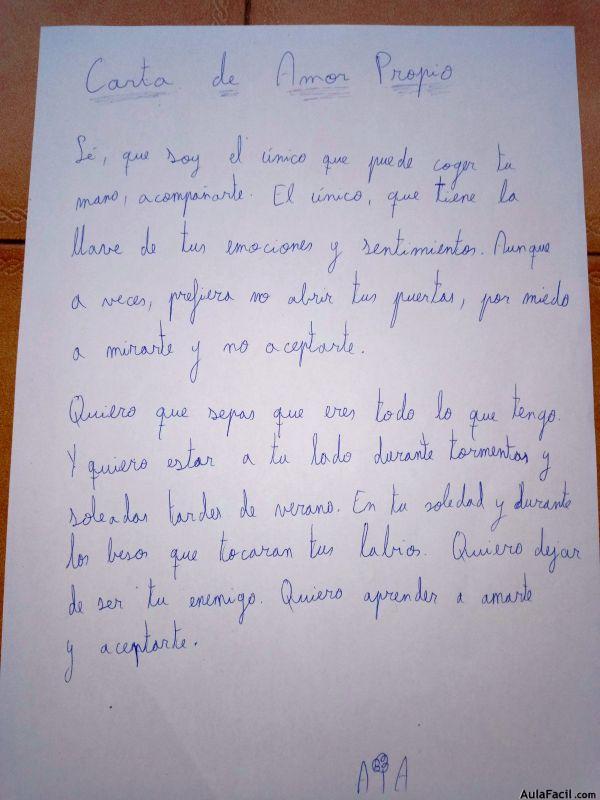 Carta de Amor Propio
Sé, que soy el único que puede coger tu
mano, acompañarte. El único, que tiene la
llave de tus emociones y sentimientos. Aunque
a veces, prefiera no abrir tus puertas, por miedo
a mirarte y no aceptarte.
Quiero que sepas que eres todo lo que tengo.
Y quiero estar a tu lado durante tormentas y
soleadas tardes de verano. En tu soledad y durante
los besos que tocaran tus labios. Quiero dejar
de ser tu enemigo. Quiero aprender a amarte
y aceptarte.
A A
AulaFacil.com